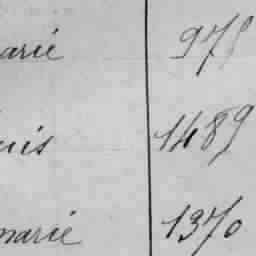 arié 975
uis 1489
marié 1370